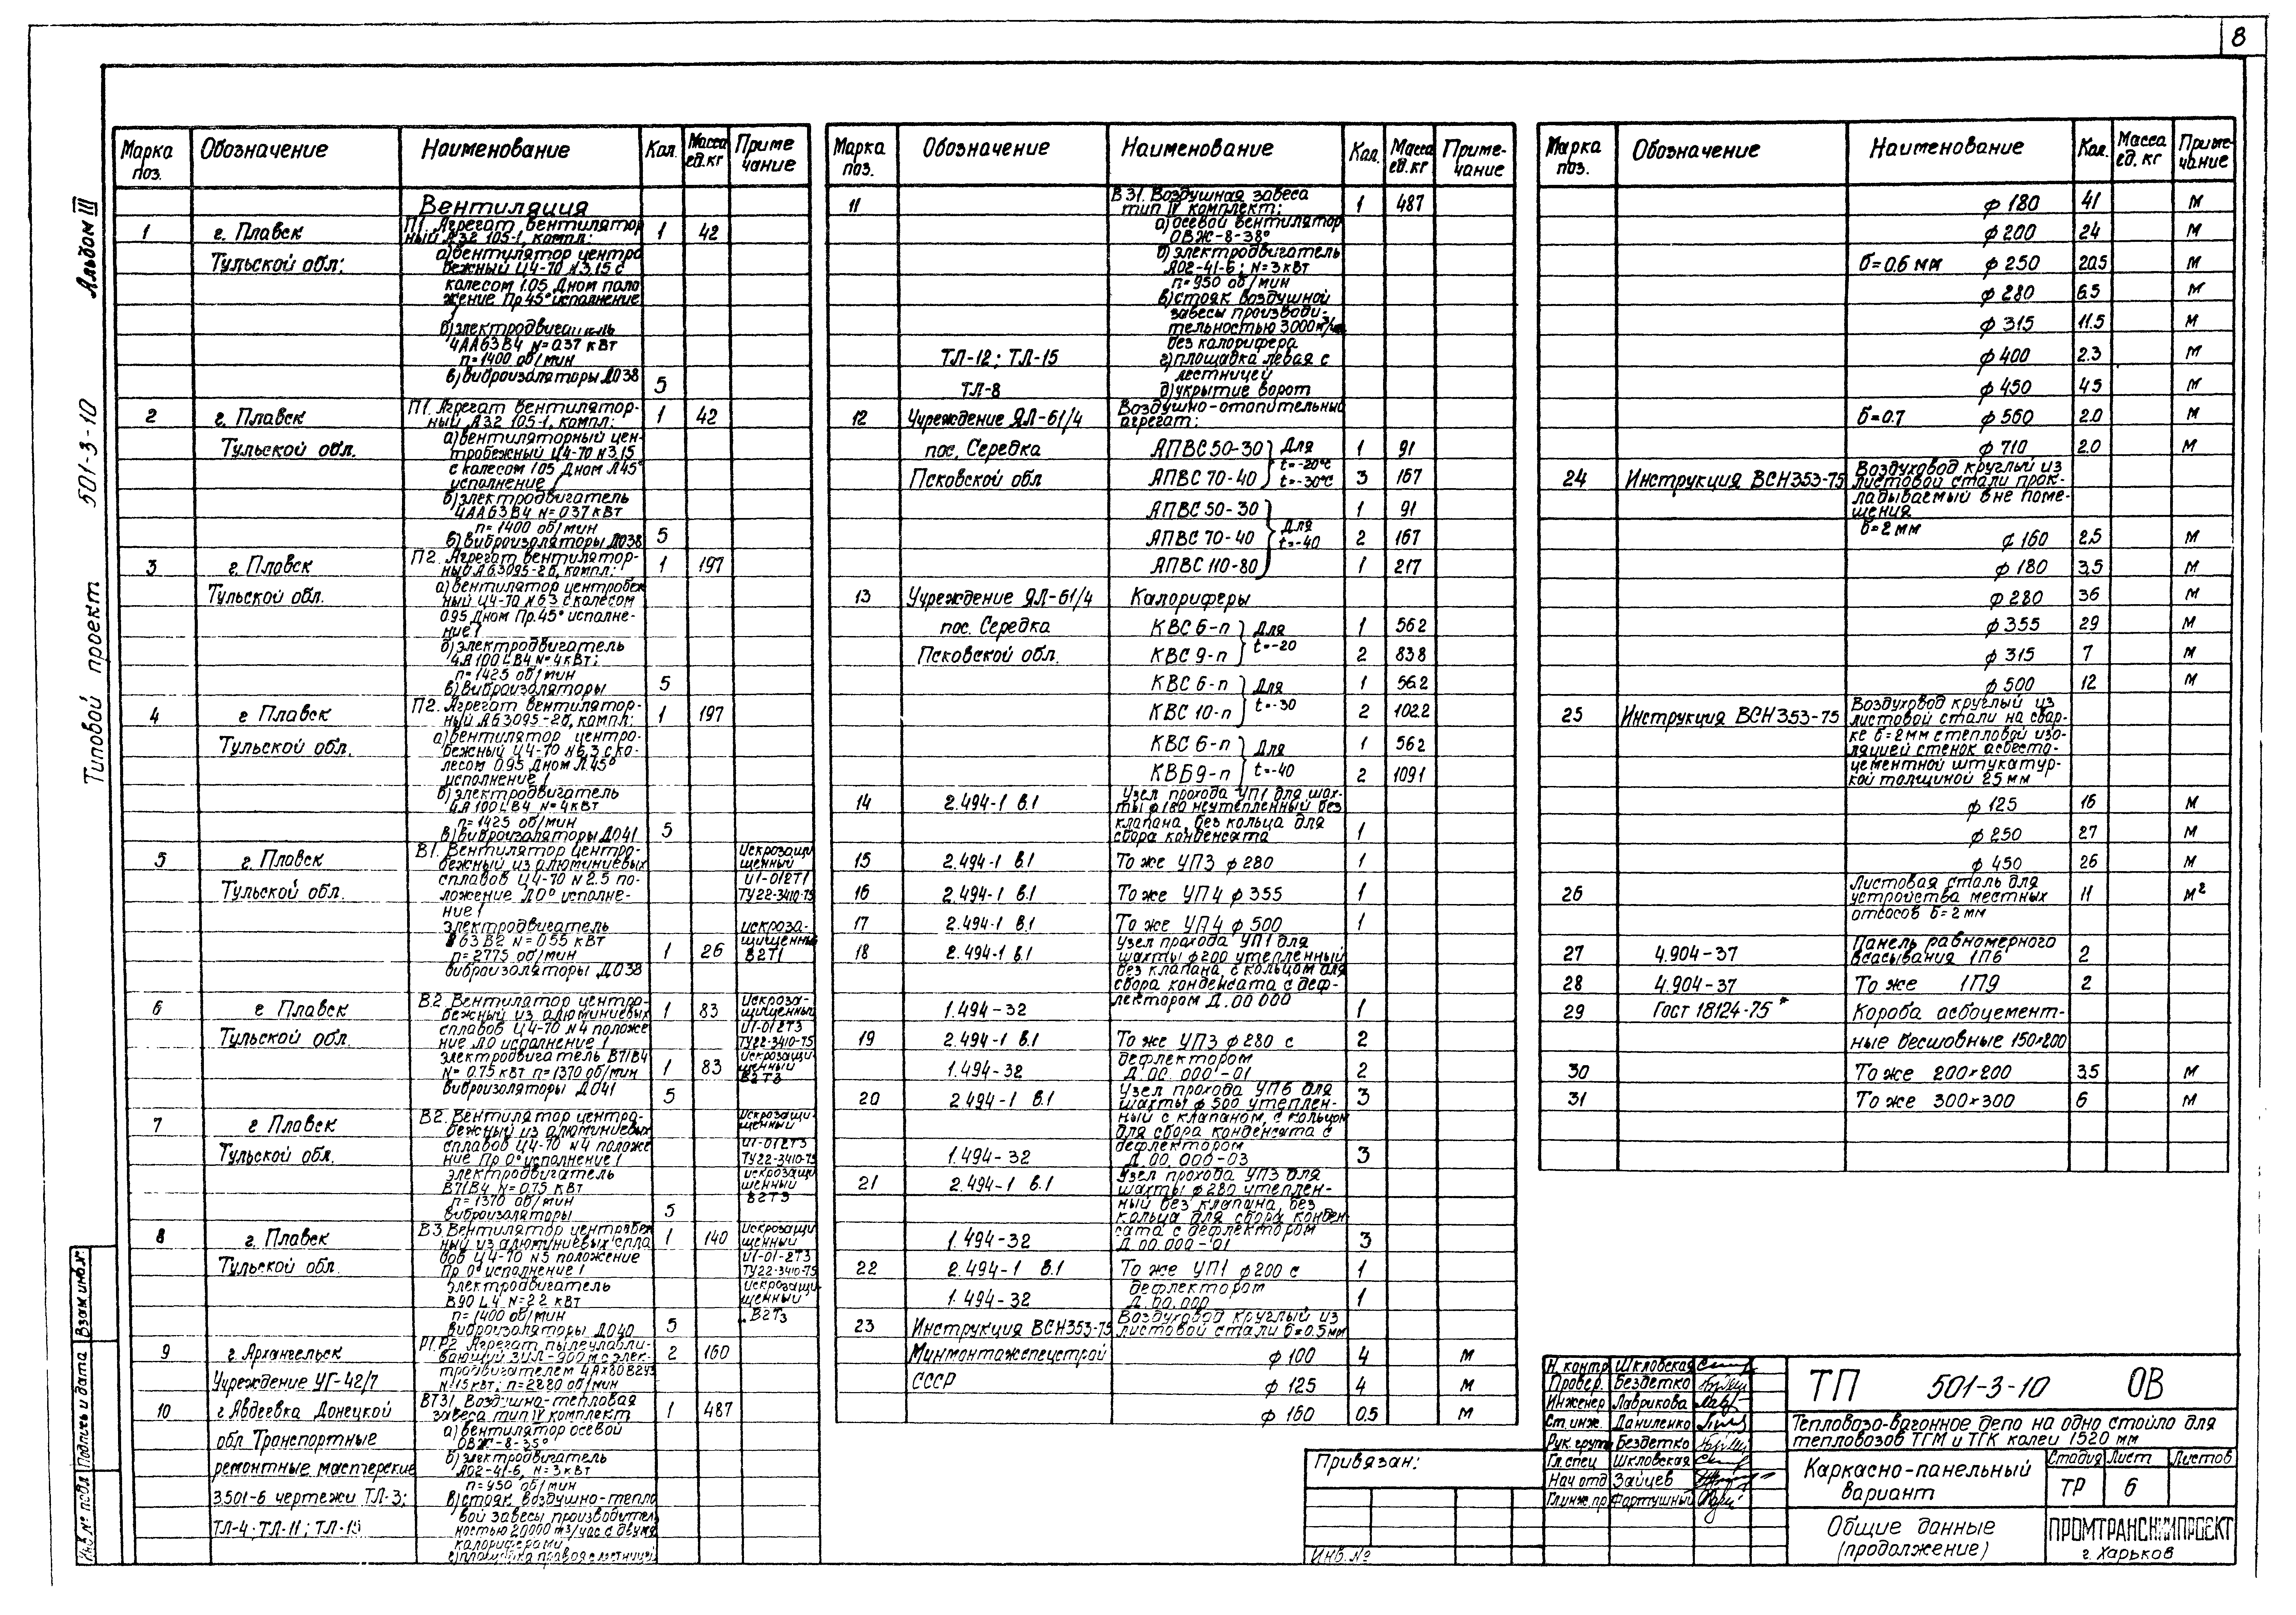 8
Альбом III
501-3-10
Типовой проект
Взам инв.№
Подпись и дата
Инв № подл
Марка поз. Обозначение Наименование Кол. Масса ед.кг Приме чание
Вентиляция
1 г. Плавск П1. Агрегат вентилятор 1 42
ный А32 105-1, компл:
Тульской обл: а) вентилятор центро
бежный Ц4-70 №3,15 с
колесом 1.05 Дном поло
жение Пр 45° исполнение
1
б) электродвигатель
4АА63В4 N=0.37 кВт
n=1400 об/мин
в) виброизоляторы ДО38 5
2 г. Плавск П1. Агрегат вентилятор- 1 42
ный А32 105-1, компл:
Тульской обл. а) вентиляторный цен-
тробежный Ц4-70 №3,15
с колесом 105 Дном Л45°
исполнение 1
б) электродвигатель
4АА63В4 N=037 кВт
n=1400 об/мин
в) виброизоляторы ДО38 5
3 г. Плавск П2. Агрегат вентилятор- 1 197
ный А63095-2б, компл:
Тульской обл. а) вентилятор центробеж
ный Ц4-70 №63 с колесом
095 Дном Пр.45° исполне-
ние 1
б) электродвигатель
4А100LВ4 N=4кВт;
n=1425 об/мин
в) виброизоляторы 5
4 г Плавск П2. Агрегат вентилятор- 1 197
ный А63095-2б, компл:
Тульской обл. а) вентилятор центро-
бежный Ц4-70 №6,3 с ко-
лесом 0.95 Дном Л.45°
исполнение 1
б) электродвигатель
4А100LВ4 N=4кВт
n=1425 об/мин
в) виброизоляторы ДО41 5
5 г. Плавск В1. Вентилятор центро- Искрозащи
бежный из алюминиевых щенный
Тульской обл. сплавов Ц4-70 №2.5 по- И1-012Т1
ложение Л0° исполне- ТУ22-3410-75
ние 1
электродвигатель искроза-
В63В2 N=055 кВт 1 26 щищенный
n=2775 об/мин В2Т1
виброизоляторы ДО38
6 г Плавск В2. Вентилятор центро- 1 83 Искроза-
бежный из алюминиевых щищенный
Тульской обл. сплавов Ц4-70 №4 положе И1-012Т3
ние Л0 исполнение 1 ТУ22-3410-75
электродвигатель В71В4 1 83 искрозащи
N=0.75 кВт n=1370 об/мин щенный В2Т3
виброизоляторы ДО41 5
7 г Плавск В2. Вентилятор центро- Искрозащи-
бежный из алюминиевых щенный
Тульской обл. сплавов Ц4-70 №4 положе И1-012Т3
ние Пр 0° исполнение 1 ТУ22-3410-75
электродвигатель искрозащи
В71В4 N=075 кВт щенный
n=1370 об/мин В2Т3
виброизоляторы 5
8 г. Плавск В3.Вентилятор центробеж 1 140 Искрозащи
ный из алюминиевых спла щенный
Тульской обл. вов Ц4-70 №5 положение И1-01-2Т3
Пр 0° исполнение 1 ТУ22-3410-75
электродвигатель искрозащи
В90L4 N=22 кВт щенный
n=1400 об/мин В2Т3
виброизоляторы ДО40 5
9 г. Архангельск Р1.Р2 Агрегат пылеулавли- 2 160
вающий ЗИЛ-900м с элек-
Учреждение УГ-42/7 тродвигателем 4Ах80В2У3
N=15 кВт; n=2880 об/мин
10 г Авдеевка Донецкой ВТЗ1. Воздушно-тепловая 1 487
завеса тип IV комплект
обл Транспортные а) вентилятор осевой
ОВЖ-8-35°
ремонтные мастерские б) электродвигатель
АО2-41-6, N=3 кВт
n=950 об/мин
3.501-6 чертежи ТЛ-3; в) стояк воздушно-тепло
ТЛ-4; ТЛ-11; ТЛ-15 вой завесы производитель
ностью 20000 м3/час с двумя
калориферами
г) площадка правая с лестницей
Марка поз. Обозначение Наименование Кол. Масса ед.кг Приме- чание
11 ВЗ1. Воздушная завеса 1 487
тип IV комплект:
а) осевой вентилятор
ОВЖ-8-38°
б) электродвигатель
АО2-41-6; N=3кВт
n=950 об/мин
в) стояк воздушной
завесы производи-
тельностью 3000м³/час
без калорифера
ТЛ-12; ТЛ-15 г) площадка левая с
лестницей
ТЛ-8 д) укрытие ворот
12 Учреждение ЯЛ-61/4 Воздушно-отопительный
агрегат:
пос. Середка АПВС 50-30 Для 1 91
Псковской обл АПВС 70-40 t=-20°с t=-30°с 3 167
АПВС 50-30 1 91
АПВС 70-40 Для t=-40 2 167
АПВС 110-80 1 217
13 Учреждение ЯЛ-61/4 Калориферы
пос. Середка КВС 6-п Для 1 562
Псковской обл. КВС 9-п t=-20 2 838
КВС 6-п Для 1 56.2
КВС 10-п t=-30 2 102.2
КВС 6-п Для 1 562
КВБ 9-п t=-40 2 1091
14 2.494-1 в.1 Узел прохода УП1 для шах-
ты ф180 неутепленный без
клапана, без кольца для
сбора конденсата 1
15 2.494-1 в.1 То же УП3 ф 280 1
16 2.494-1 в.1 То же УП4 ф 355 1
17 2.494-1 в.1 То же УП4 ф 500 1
18 2.494-1 в.1 Узел прохода УП1 для
шахты ф200 утепленный
без клапана, с кольцом для
сбора конденсата с деф-
1.494-32 лектором Д.00 000 1
19 2.494-1 в.1 То же УП3 ф 280 с 2
1.494-32 дефлектором 2
Д 00. 000 -01
20 2.494-1 в.1 Узел прохода УП6 для 3
шахты ф 500 утеплен-
ный с клапаном, с кольцом
для сбора конденсата с
1.494-32 дефлектором 3
Д.00.000-03
21 2.494-1 в.1 Узел прохода УП3 для
шахты ф 280 утеплен-
ный без клапана, без
кольца для сбора конден-
1.494-32 сата с дефлектором 3
Д.00.000-01
22 2.494-1 в.1 То же УП1 ф200 с 1
1.494-32 дефлектором 1
Д.00.000
23 Инструкция ВСН353-75 Воздуховод круглый из
листовой стали б=0.5мм
Минмонтажспецстрой ф 100 4 м
СССР ф 125 4 м
ф 160 0.5 м
Марка поз. Обозначение Наименование Кол. Масса ед. кг Приме- чание
ф 180 41 м
ф 200 24 м
б=0.6 мм ф 250 20.5 м
ф 280 6.5 м
ф 315 11.5 м
ф 400 2.3 м
ф 450 45 м
б=0.7 ф 560 2.0 м
ф 710 2.0 м
24 Инструкция ВСН353-75 Воздуховод круглый из
листовой стали прок-
ладываемый вне поме-
щения
б=2 мм ф 160 2.5 м
ф 180 3.5 м
ф 280 36 м
ф 355 29 м
ф 315 7 м
ф 500 12 м
25 Инструкция ВСН353-75 Воздуховод круглый из
листовой стали на свар-
ке б=2мм с тепловой изо-
ляцией стенок асбесто-
цементной штукатур-
кой толщиной 25 мм
ф 125 16 м
ф 250 27 м
ф 450 26 м
26 Листовая сталь для 11 м²
устройства местных
отсосов б=2 мм
27 4.904-37 Панель равномерного 2
всасывания 1П6
28 4.904-37 То же 1П9 2
29 Гост 18124-75* Короба асбоцемент-
ные бесшовные 150×200
30 То же 200×200 3.5 м
31 То же 300×300 6 м
Привязан:
Инв. №
Н. контр Шкловская
Провер. Бездетко
Инженер Лаврикова
Ст. инж. Даниленко
Рук. групп Бездетко
Гл. спец Шкловская
Нач отд Зайцев
Гл.инж.пр Фартушный
ТП 501-3-10 ОВ
Тепловозо-вагонное депо на одно стойло для
тепловозов ТГМ и ТГК колеи 1520 мм
Каркасно-панельный
вариант
Стадия Лист Листов
ТР 6
Общие данные
(продолжение)
ПРОМТРАНСНИИПРОЕКТ
г. Харьков